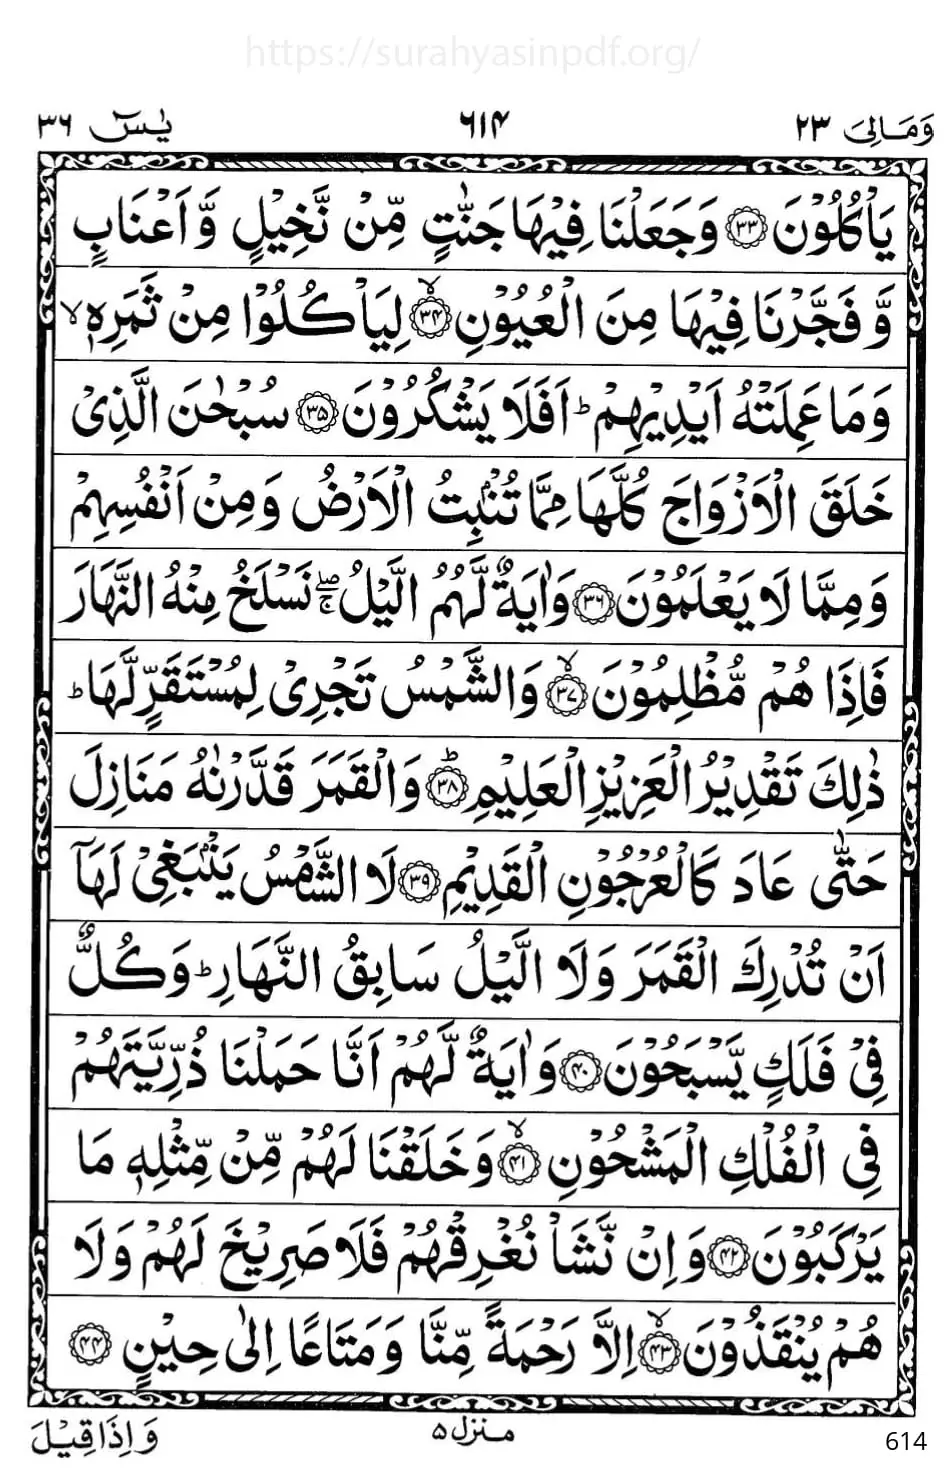 https://surahyasinpdf.org/
وَمَالِیَ ۲۳ ۶۱۴ یٰسٓ ۳۶
یَاْكُلُوْنَ ﴿۳۳﴾ وَجَعَلْنَا فِیْهَا جَنّٰتٍ مِّنْ نَّخِیْلٍ وَّاَعْنَابٍ
وَّفَجَّرْنَا فِیْهَا مِنَ الْعُیُوْنِ ﴿۳۴﴾ۙ لِیَاْكُلُوْا مِنْ ثَمَرِهٖۙ
وَمَا عَمِلَتْهُ اَیْدِیْهِمْؕ اَفَلَا یَشْكُرُوْنَ ﴿۳۵﴾ سُبْحٰنَ الَّذِیْ
خَلَقَ الْاَزْوَاجَ كُلَّهَا مِمَّا تُنْۢبِتُ الْاَرْضُ وَمِنْ اَنْفُسِهِمْ
وَمِمَّا لَا یَعْلَمُوْنَ ﴿۳۶﴾ وَاٰیَةٌ لَّهُمُ الَّیْلُ ۖۚ نَسْلَخُ مِنْهُ النَّهَارَ
فَاِذَا هُمْ مُّظْلِمُوْنَ ﴿۳۷﴾ۙ وَالشَّمْسُ تَجْرِیْ لِمُسْتَقَرٍّ لَّهَاؕ
ذٰلِكَ تَقْدِیْرُ الْعَزِیْزِ الْعَلِیْمِ ﴿۳۸﴾ؕ وَالْقَمَرَ قَدَّرْنٰهُ مَنَازِلَ
حَتّٰی عَادَ كَالْعُرْجُوْنِ الْقَدِیْمِ ﴿۳۹﴾ لَا الشَّمْسُ یَنْۢبَغِیْ لَهَاۤ
اَنْ تُدْرِكَ الْقَمَرَ وَلَا الَّیْلُ سَابِقُ النَّهَارِؕ وَكُلٌّ
فِیْ فَلَكٍ یَّسْبَحُوْنَ ﴿۴۰﴾ وَاٰیَةٌ لَّهُمْ اَنَّا حَمَلْنَا ذُرِّیَّتَهُمْ
فِی الْفُلْكِ الْمَشْحُوْنِ ﴿۴۱﴾ۙ وَخَلَقْنَا لَهُمْ مِّنْ مِّثْلِهٖ مَا
یَرْكَبُوْنَ ﴿۴۲﴾ وَاِنْ نَّشَاْ نُغْرِقْهُمْ فَلَا صَرِیْخَ لَهُمْ وَلَا
هُمْ یُنْقَذُوْنَ ﴿۴۳﴾ۙ اِلَّا رَحْمَةً مِّنَّا وَمَتَاعًا اِلٰی حِیْنٍ ﴿۴۴﴾
614 منزل ۵ وَاِذَا قِیْلَ